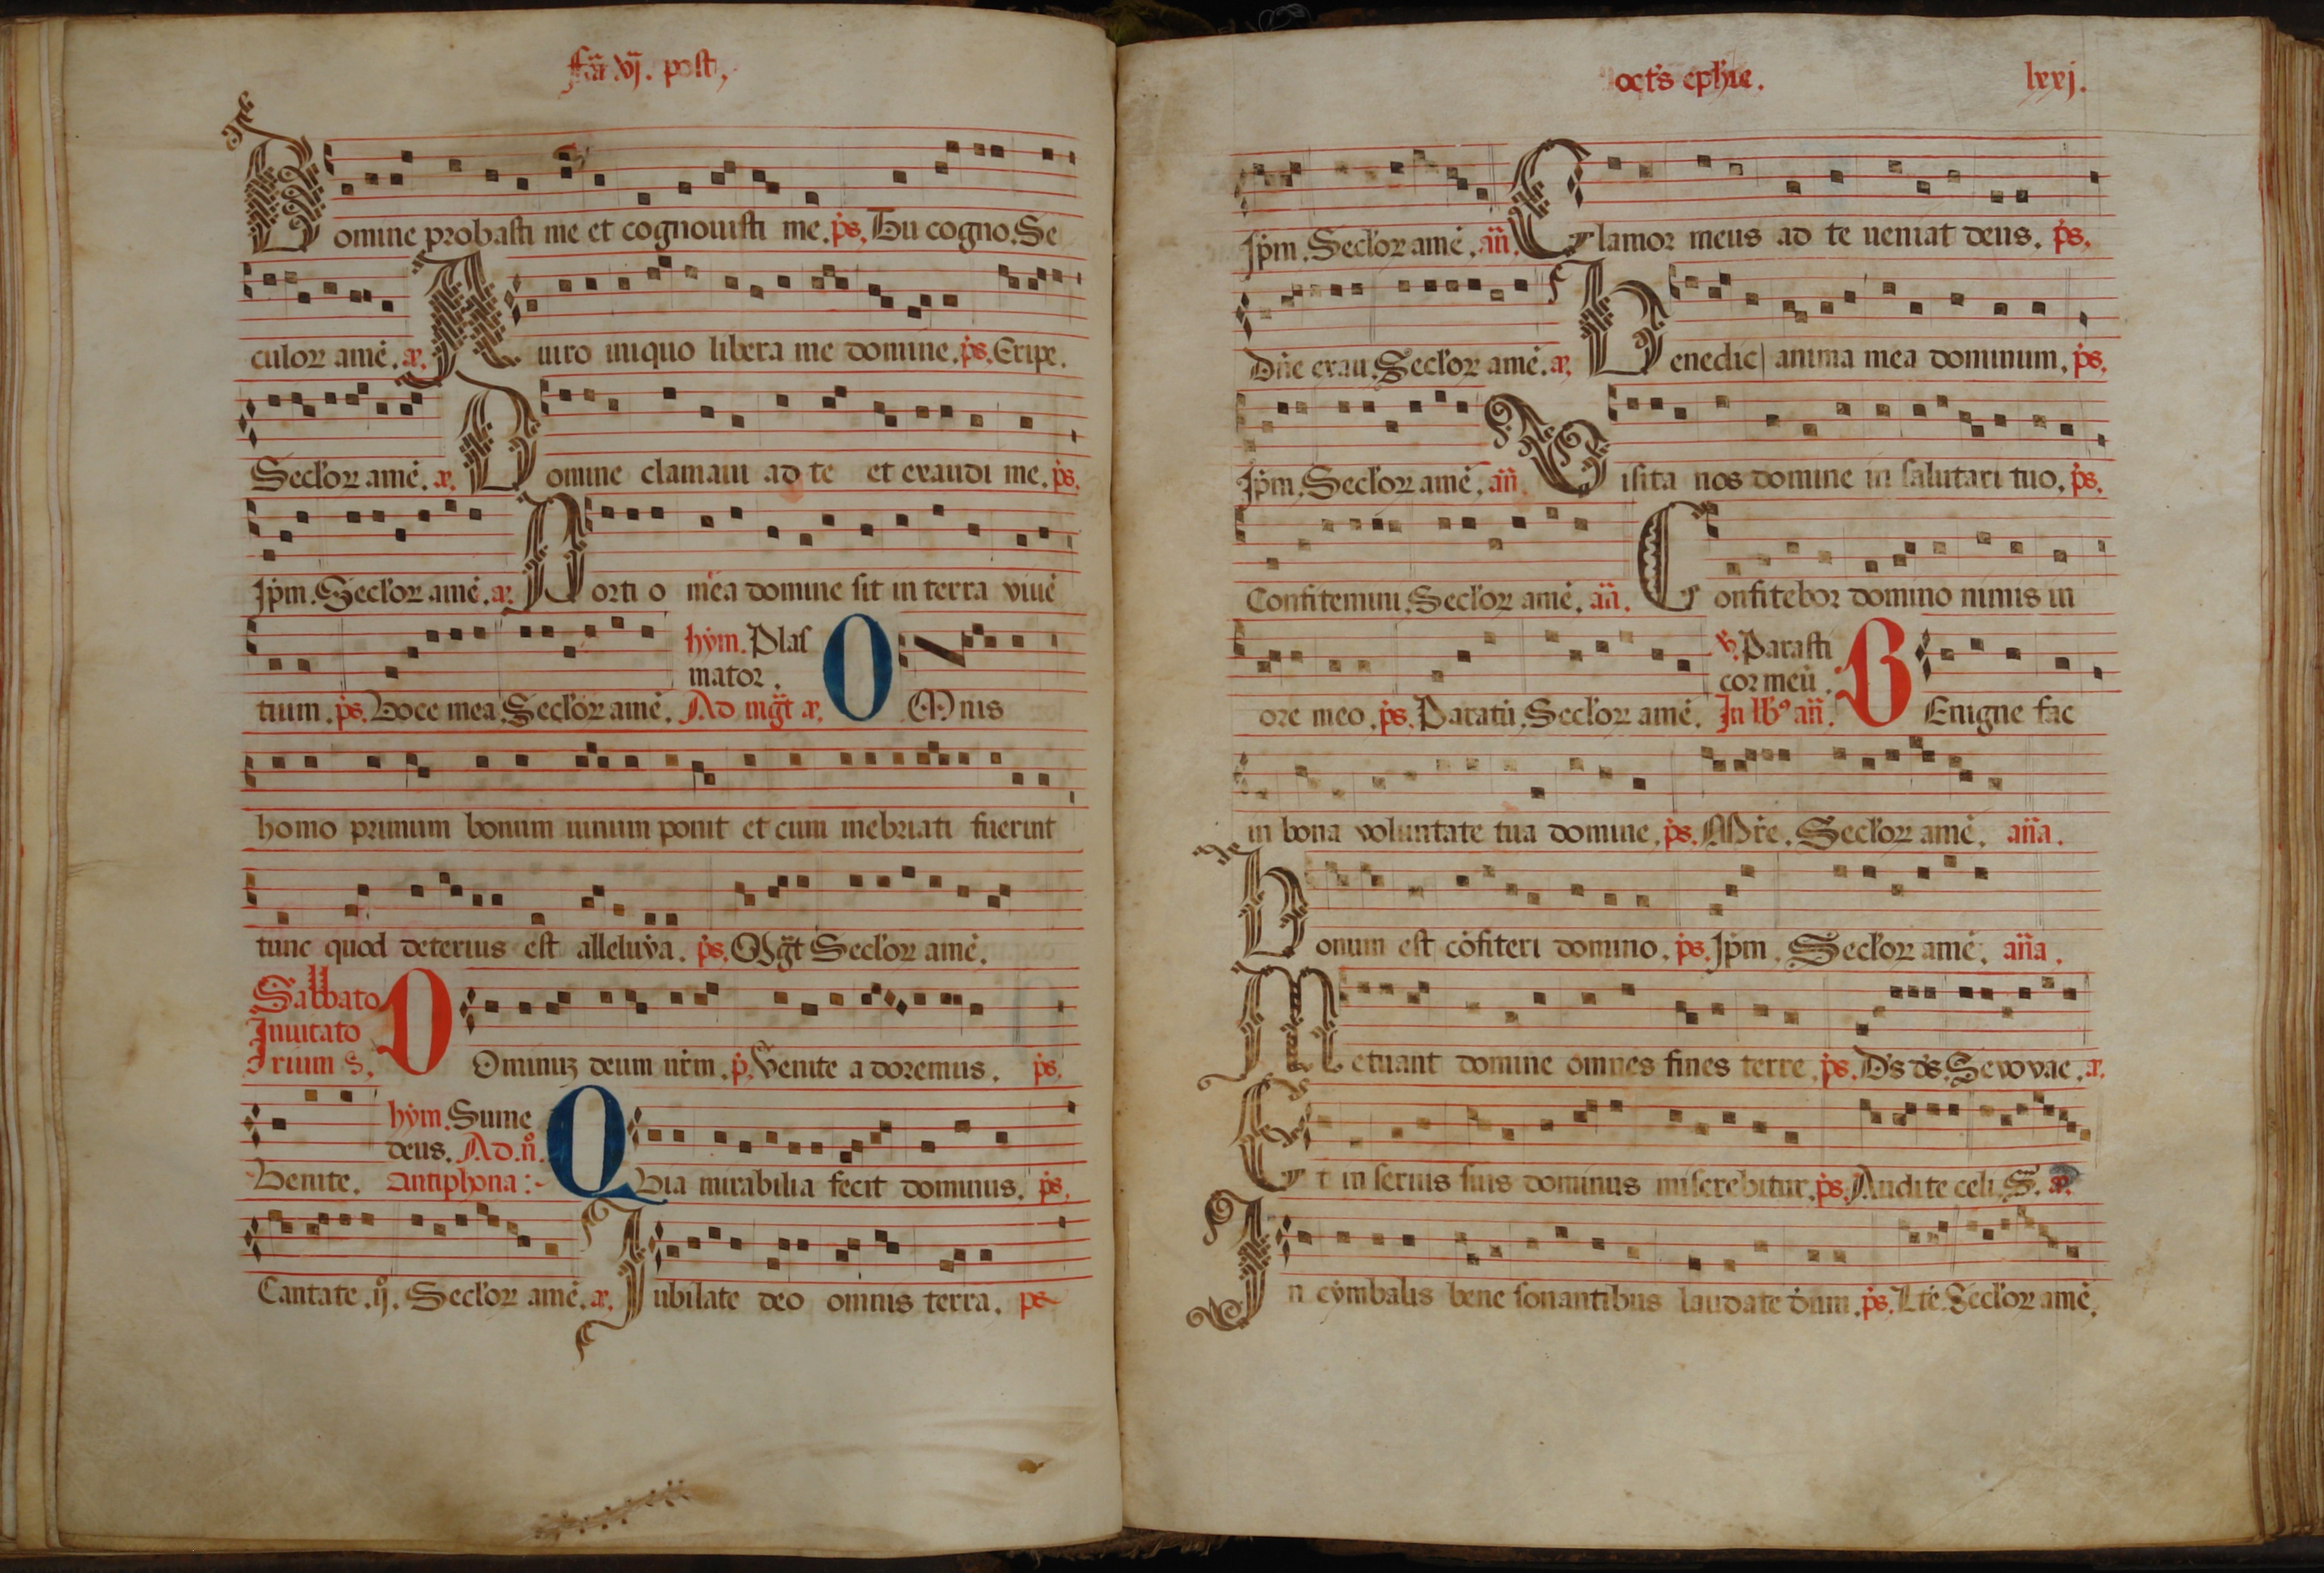 fã vj. post,
Domine probasti me et cognouisti me. ps. Tu cogno. Se
culor amē. a. A uiro iniquo libera me domine. ps. Eripe.
Secl'or amē. a. Domine clamaui ad te et exaudi me. ps.
Ip̄m. Secl'or amē. a. Portio mea domine sit in terra viuē
hym. Plas
mator.
tium. ps. Voce mea. Secl'or amē. Ad mgt̄ a. OMnis
homo primum bonum uinum ponit et cum inebriati fuerint
tunc quod deterius est alleluya. ps. Mgt̄ Secl'or amē.
Sabbato
Inuitato
rium s. DOminuz deum nr̄m. p. Venite adoremus. ps.
hym. Sume
deus. Ad. n̊.
Venite. antiphona :~ QVia mirabilia fecit dominus. ps.
Cantate. ij. Secl'or amē. a. Iubilate deo omnis terra. ps
oct's ephie. lxxj.
Ip̄m. Secl'or amē. añ. Clamor meus ad te ueniat deus. ps.
Dñe exau. Secl'or amē. a. Benedic anima mea dominum. ps.
Ip̄m. Secl'or amē. añ. Visita nos domine in salutari tuo. ps.
Confitemini. Secl'or amē. añ. Confitebor domino nimis in
v. Parasti
cor meū.
ore meo. ps. Paratū. Secl'or amē. In lb' añ. BEnigne fac
in bona voluntate tua domine. ps. Mr̄e. Secl'or amē. aña.
Bonum est cōfiteri domino. ps. Ip̄m. Secl'or amē. aña.
Metuant domine omnes fines terre. ps. D's d's. Sevovae. a.
Et in seruis suis dominus miserebitur. ps. Audite celi. S. a.
In cymbalis bene sonantibus laudate dūm. ps. Ltē. Secl'or amē.